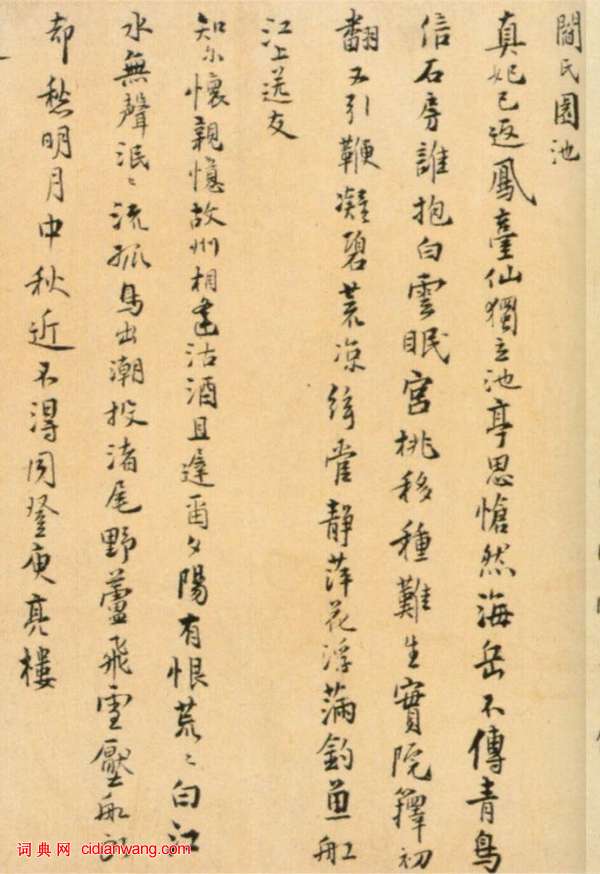 閻氏園池
真妃已返鳳臺仙獨立池亭思愴然海岳不傳青鳥
信石房誰抱白雲眠宮桃移種難生實院籜初
翻又引鞭凝碧荒凉管静萍花浮滿釣魚船
江上送友
知尔懷親憶故州相逢沽酒且遲留夕陽有恨荒〻白江
水無聲泯〻流孤鳥出潮投渚尾野蘆飛雪壓船頭
却愁明月中秋近不得同登庾亮樓
词典网 cidianwang.com